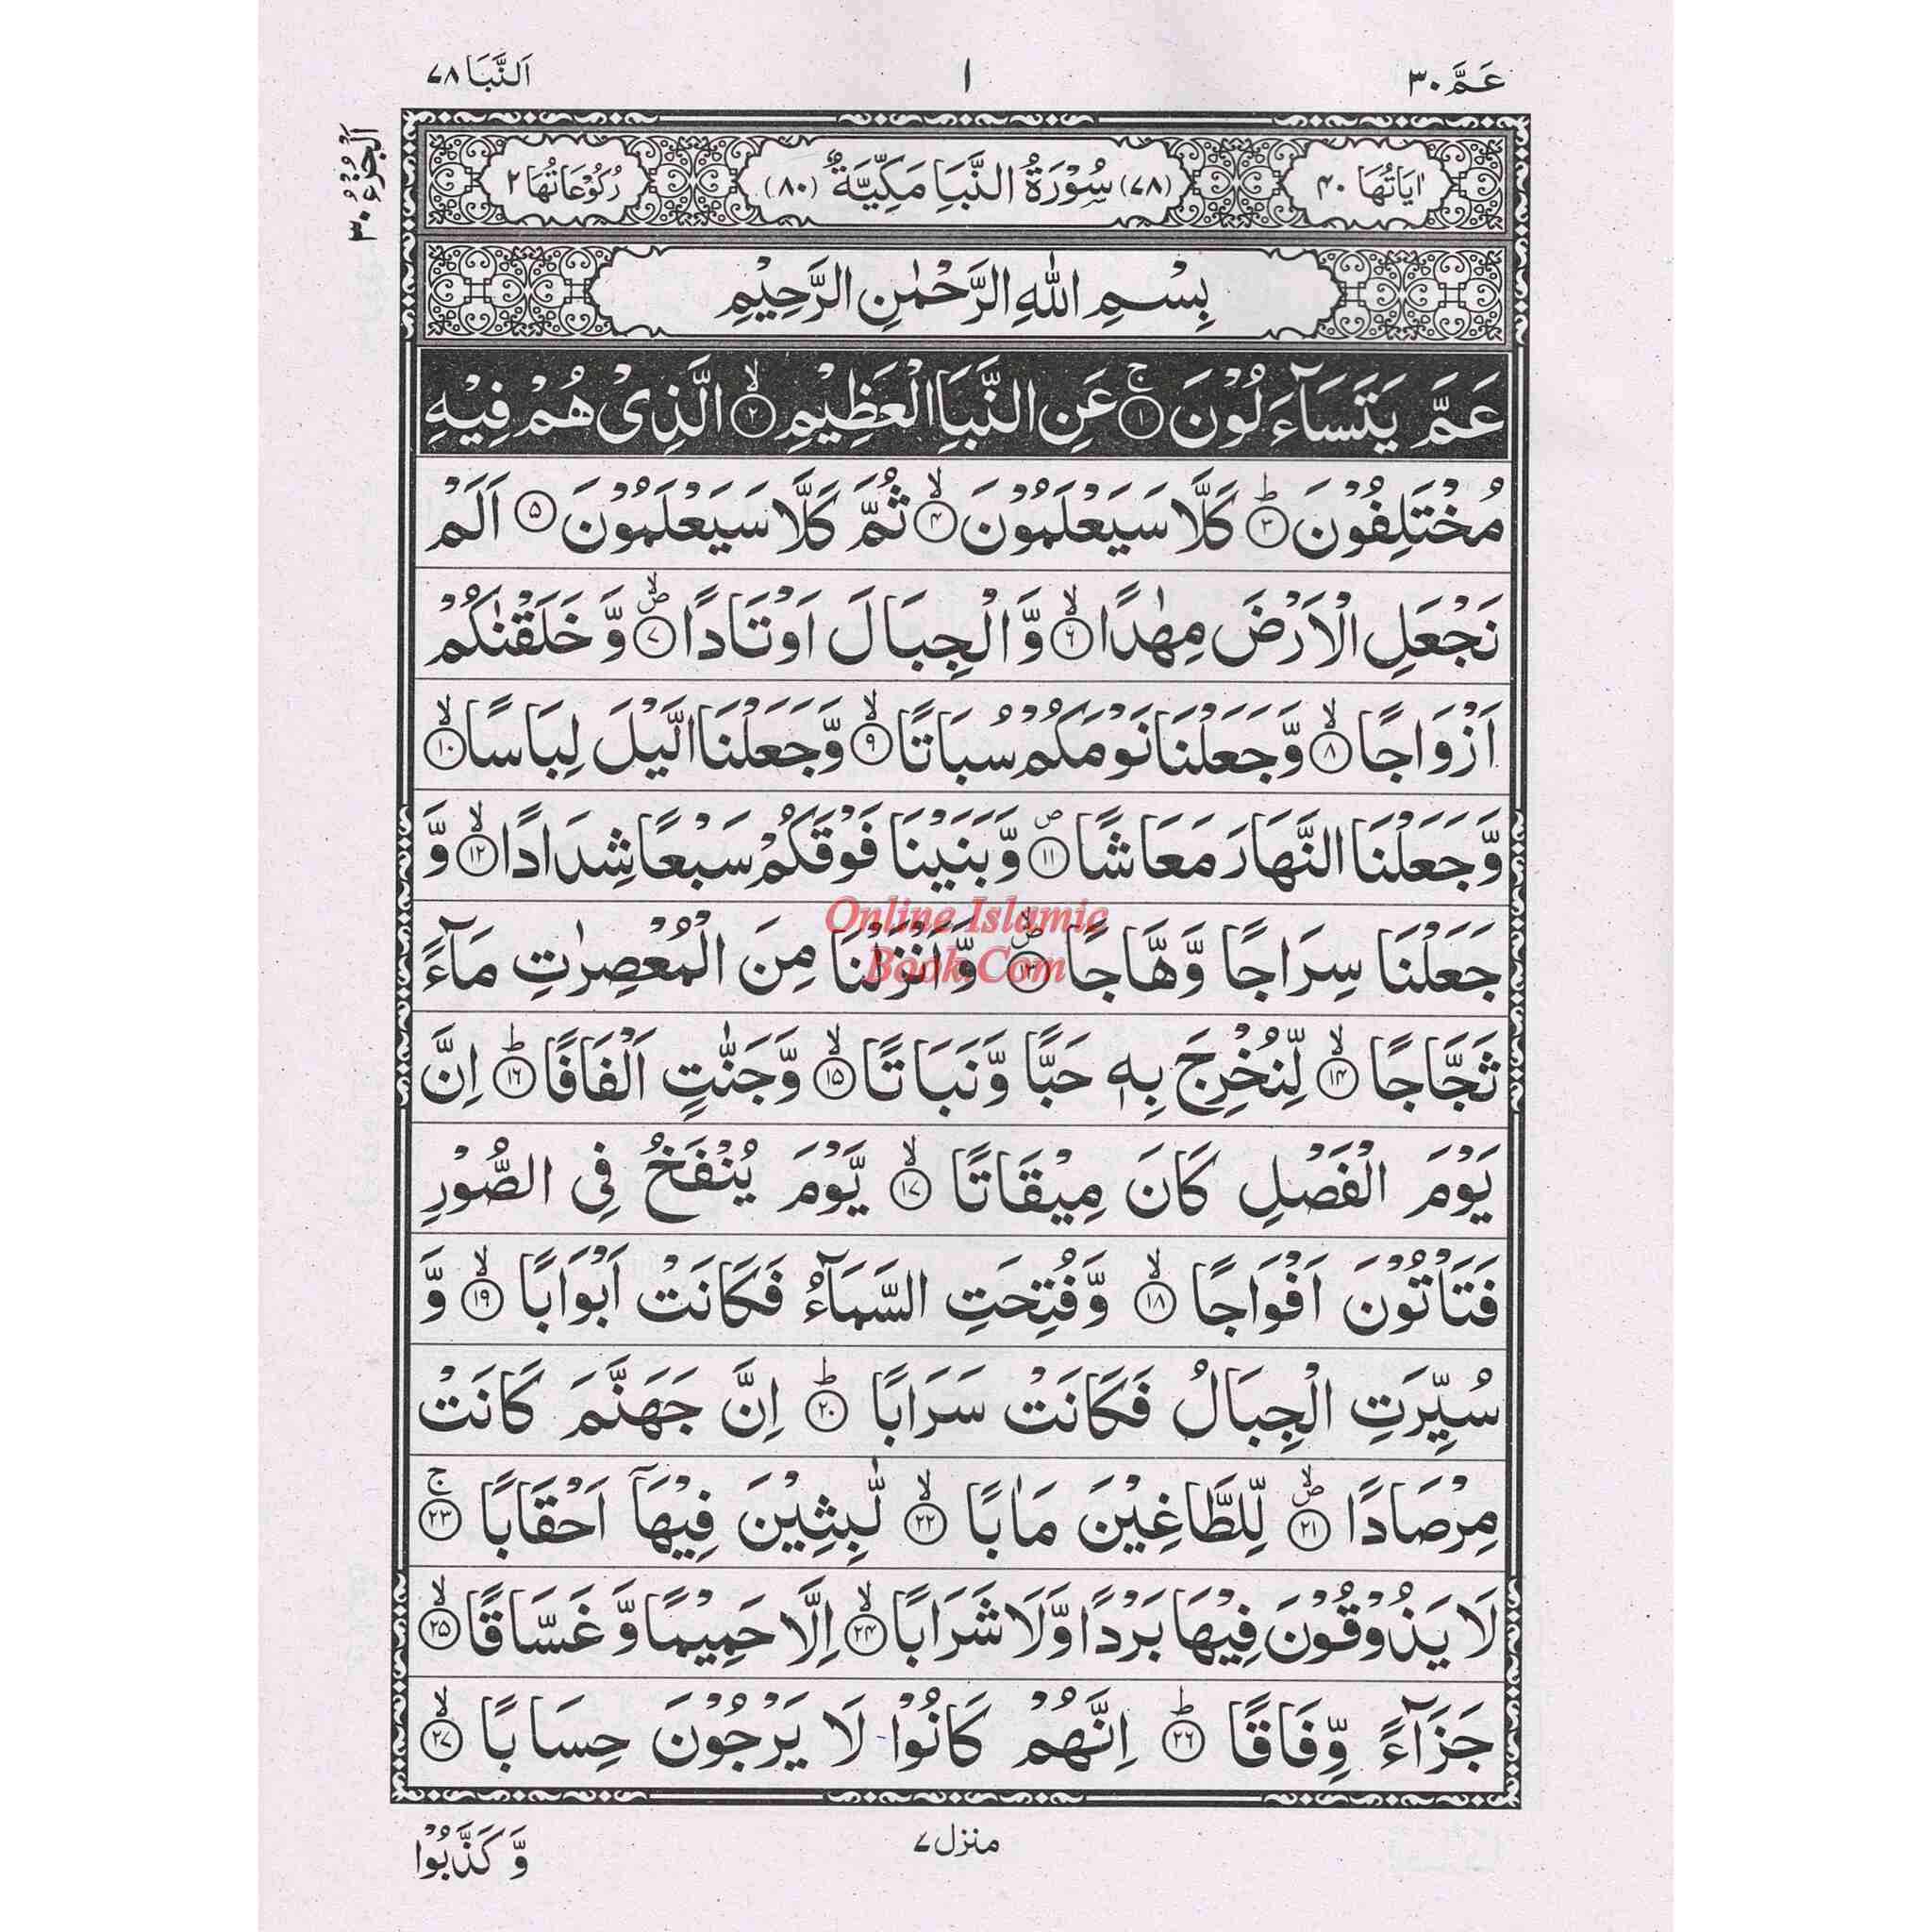 عَمَّ ٣٠
١
اَلنَّبَا ٧٨
اَلْجُزْءُ ٣٠
اٰيَاتُهَا ٤٠
(٧٨) سُوْرَةُ النَّبَاِ مَكِّيَّةٌ (٨٠)
رُكُوْعَاتُهَا ٢
بِسْمِ اللّٰهِ الرَّحْمٰنِ الرَّحِيْمِ
عَمَّ يَتَسَآءَلُوْنَ ۚ﴿۱﴾ عَنِ النَّبَاِ الْعَظِيْمِ ۙ﴿۲﴾ الَّذِىْ هُمْ فِيْهِ
مُخْتَلِفُوْنَ ؕ﴿۳﴾ كَلَّا سَيَعْلَمُوْنَ ۙ﴿۴﴾ ثُمَّ كَلَّا سَيَعْلَمُوْنَ ﴿۵﴾ اَلَمْ
نَجْعَلِ الْاَرْضَ مِهٰدًا ۙ﴿۶﴾ وَّ الْجِبَالَ اَوْتَادًا ۪ۙ﴿۷﴾ وَّ خَلَقْنٰكُمْ
اَزْوَاجًا ۙ﴿۸﴾ وَّجَعَلْنَا نَوْمَكُمْ سُبَاتًا ۙ﴿۹﴾ وَّجَعَلْنَا الَّيْلَ لِبَاسًا ۙ﴿۱۰﴾
وَّجَعَلْنَا النَّهَارَ مَعَاشًا ۪﴿۱۱﴾ وَّبَنَيْنَا فَوْقَكُمْ سَبْعًا شِدَادًا ۙ﴿۱۲﴾ وَّ
جَعَلْنَا سِرَاجًا وَّهَّاجًا ۪ۙ﴿۱۳﴾ وَّاَنْزَلْنَا مِنَ الْمُعْصِرٰتِ مَآءً
ثَجَّاجًا ۙ﴿۱۴﴾ لِّنُخْرِجَ بِهٖ حَبًّا وَّنَبَاتًا ۙ﴿۱۵﴾ وَّجَنّٰتٍ اَلْفَافًا ؕ﴿۱۶﴾ اِنَّ
يَوْمَ الْفَصْلِ كَانَ مِيْقَاتًا ۙ﴿۱۷﴾ يَّوْمَ يُنْفَخُ فِى الصُّوْرِ
فَتَاْتُوْنَ اَفْوَاجًا ۙ﴿۱۸﴾ وَّفُتِحَتِ السَّمَآءُ فَكَانَتْ اَبْوَابًا ۙ﴿۱۹﴾ وَّ
سُيِّرَتِ الْجِبَالُ فَكَانَتْ سَرَابًا ؕ﴿۲۰﴾ اِنَّ جَهَنَّمَ كَانَتْ
مِرْصَادًا ۪ۙ﴿۲۱﴾ لِّلطَّاغِيْنَ مَاٰبًا ۙ﴿۲۲﴾ لّٰبِثِيْنَ فِيْهَاۤ اَحْقَابًا ۚ﴿۲۳﴾
لَا يَذُوْقُوْنَ فِيْهَا بَرْدًا وَّلَا شَرَابًا ۙ﴿۲۴﴾ اِلَّا حَمِيْمًا وَّ غَسَّاقًا ۙ﴿۲۵﴾
جَزَآءً وِّفَاقًا ؕ﴿۲۶﴾ اِنَّهُمْ كَانُوْا لَا يَرْجُوْنَ حِسَابًا ۙ﴿۲۷﴾
منزل ٧
وَّ كَذَّبُوْا
Online Islamic
Book.Com